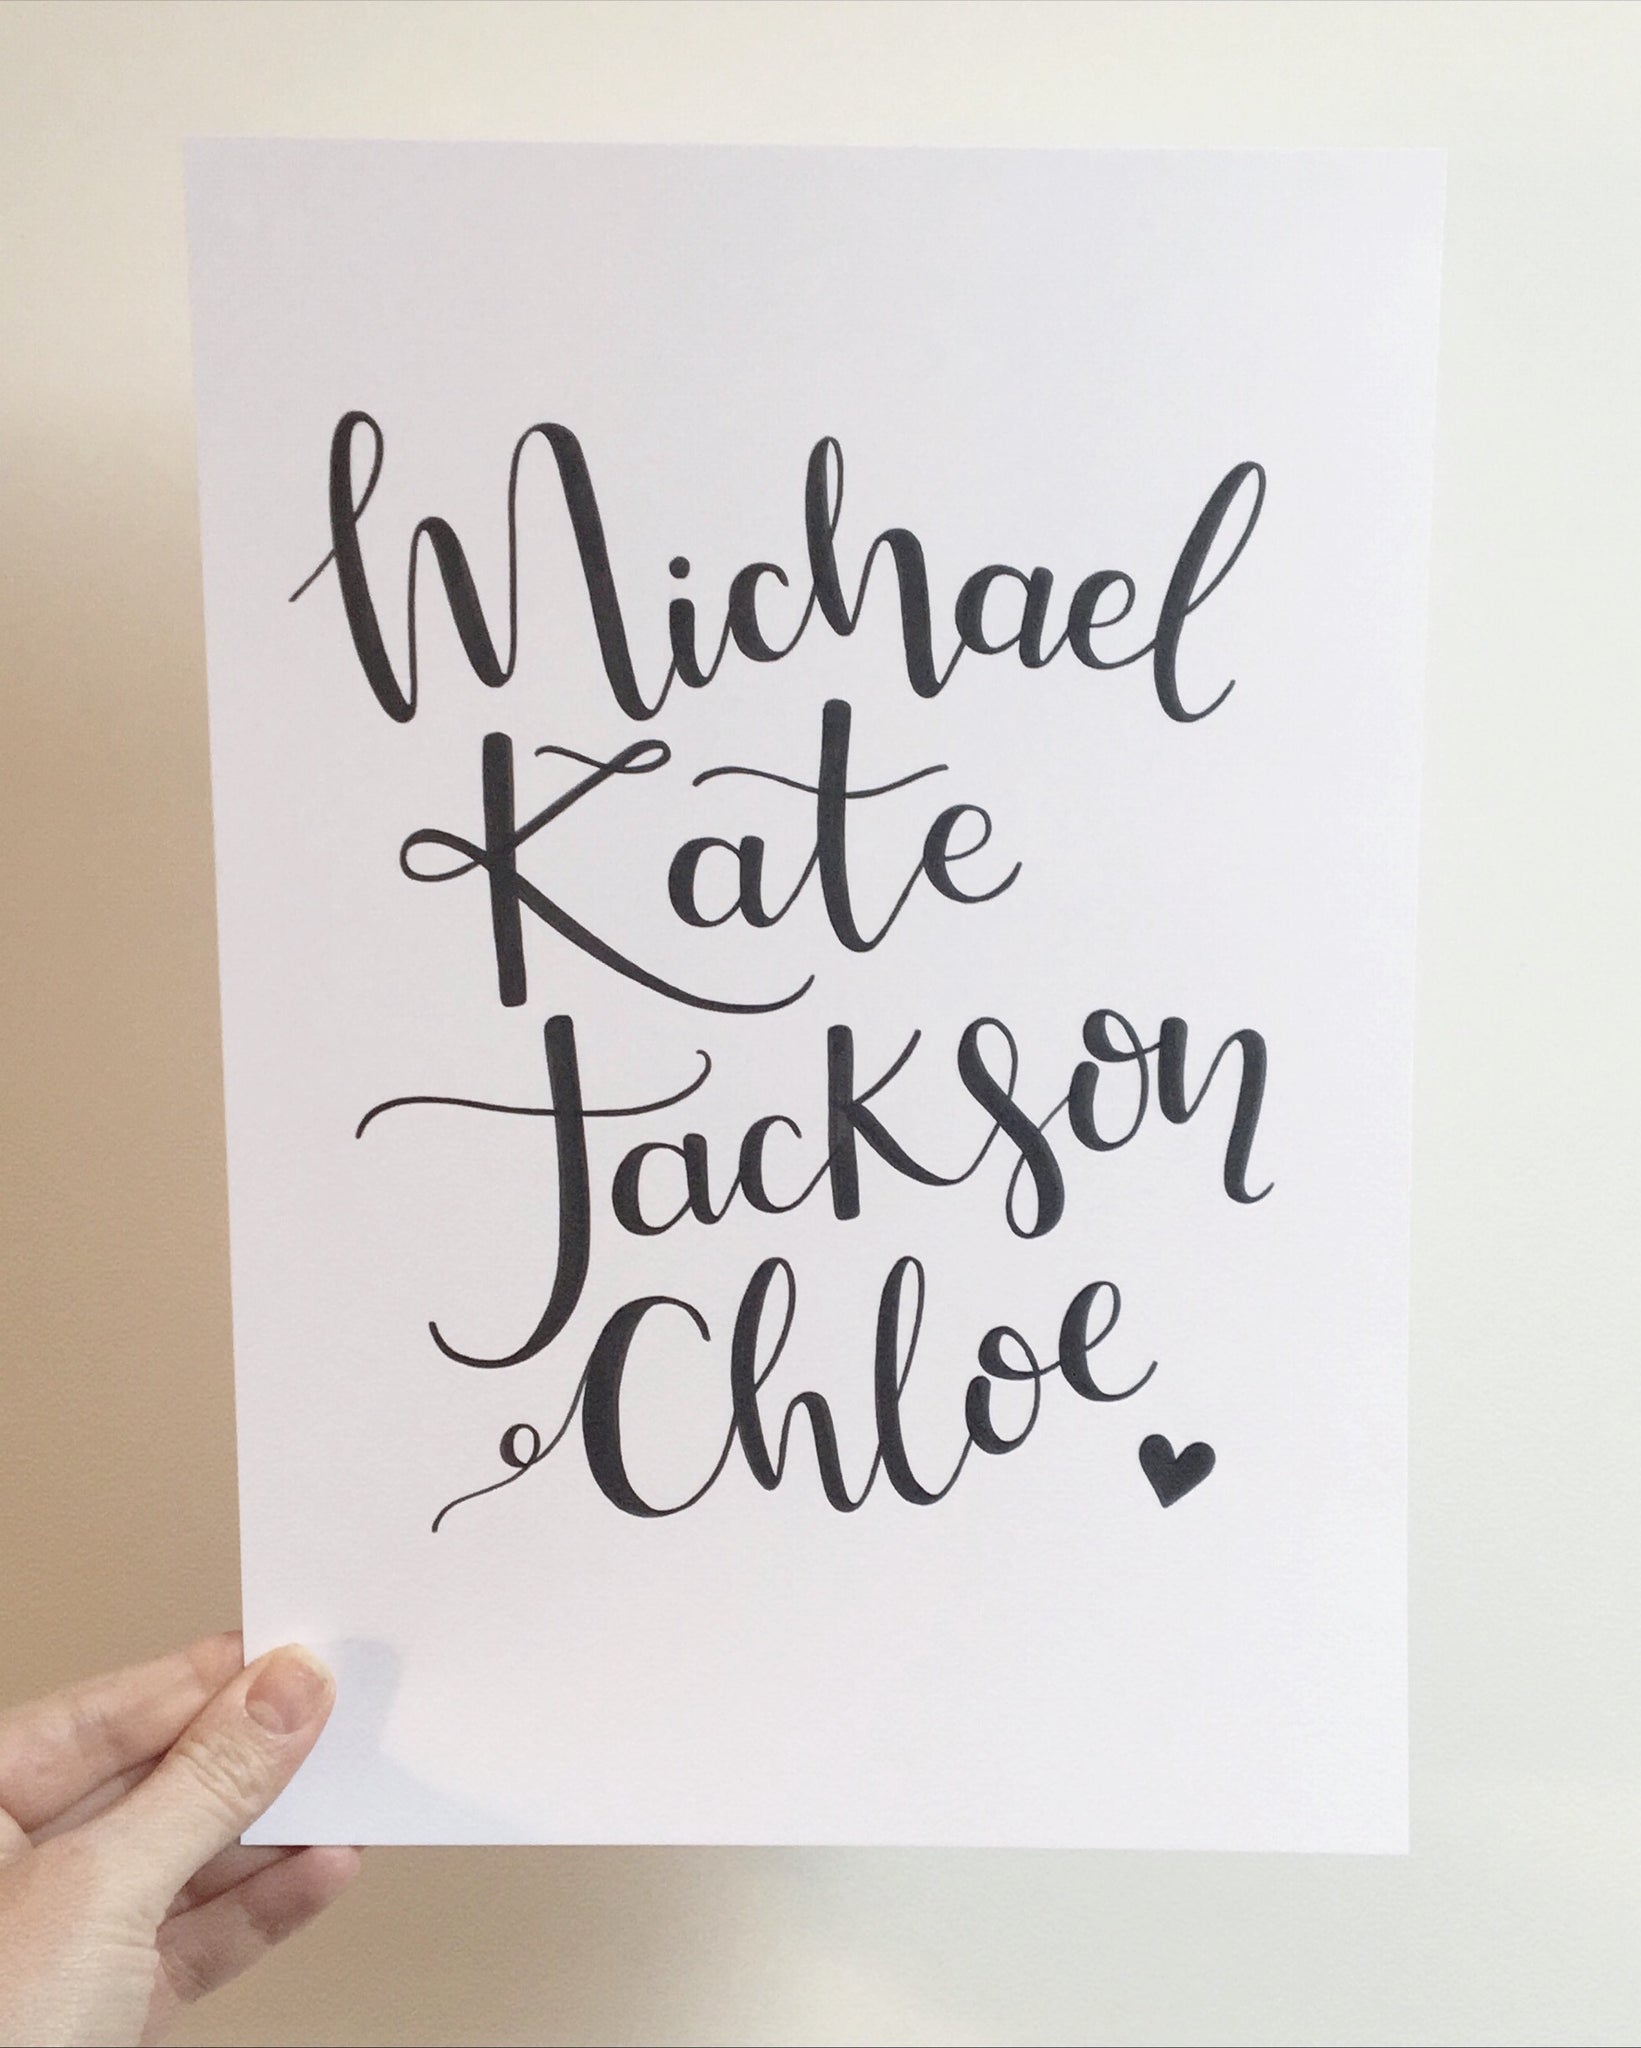 Michael
Kate
Jackson
Chloe